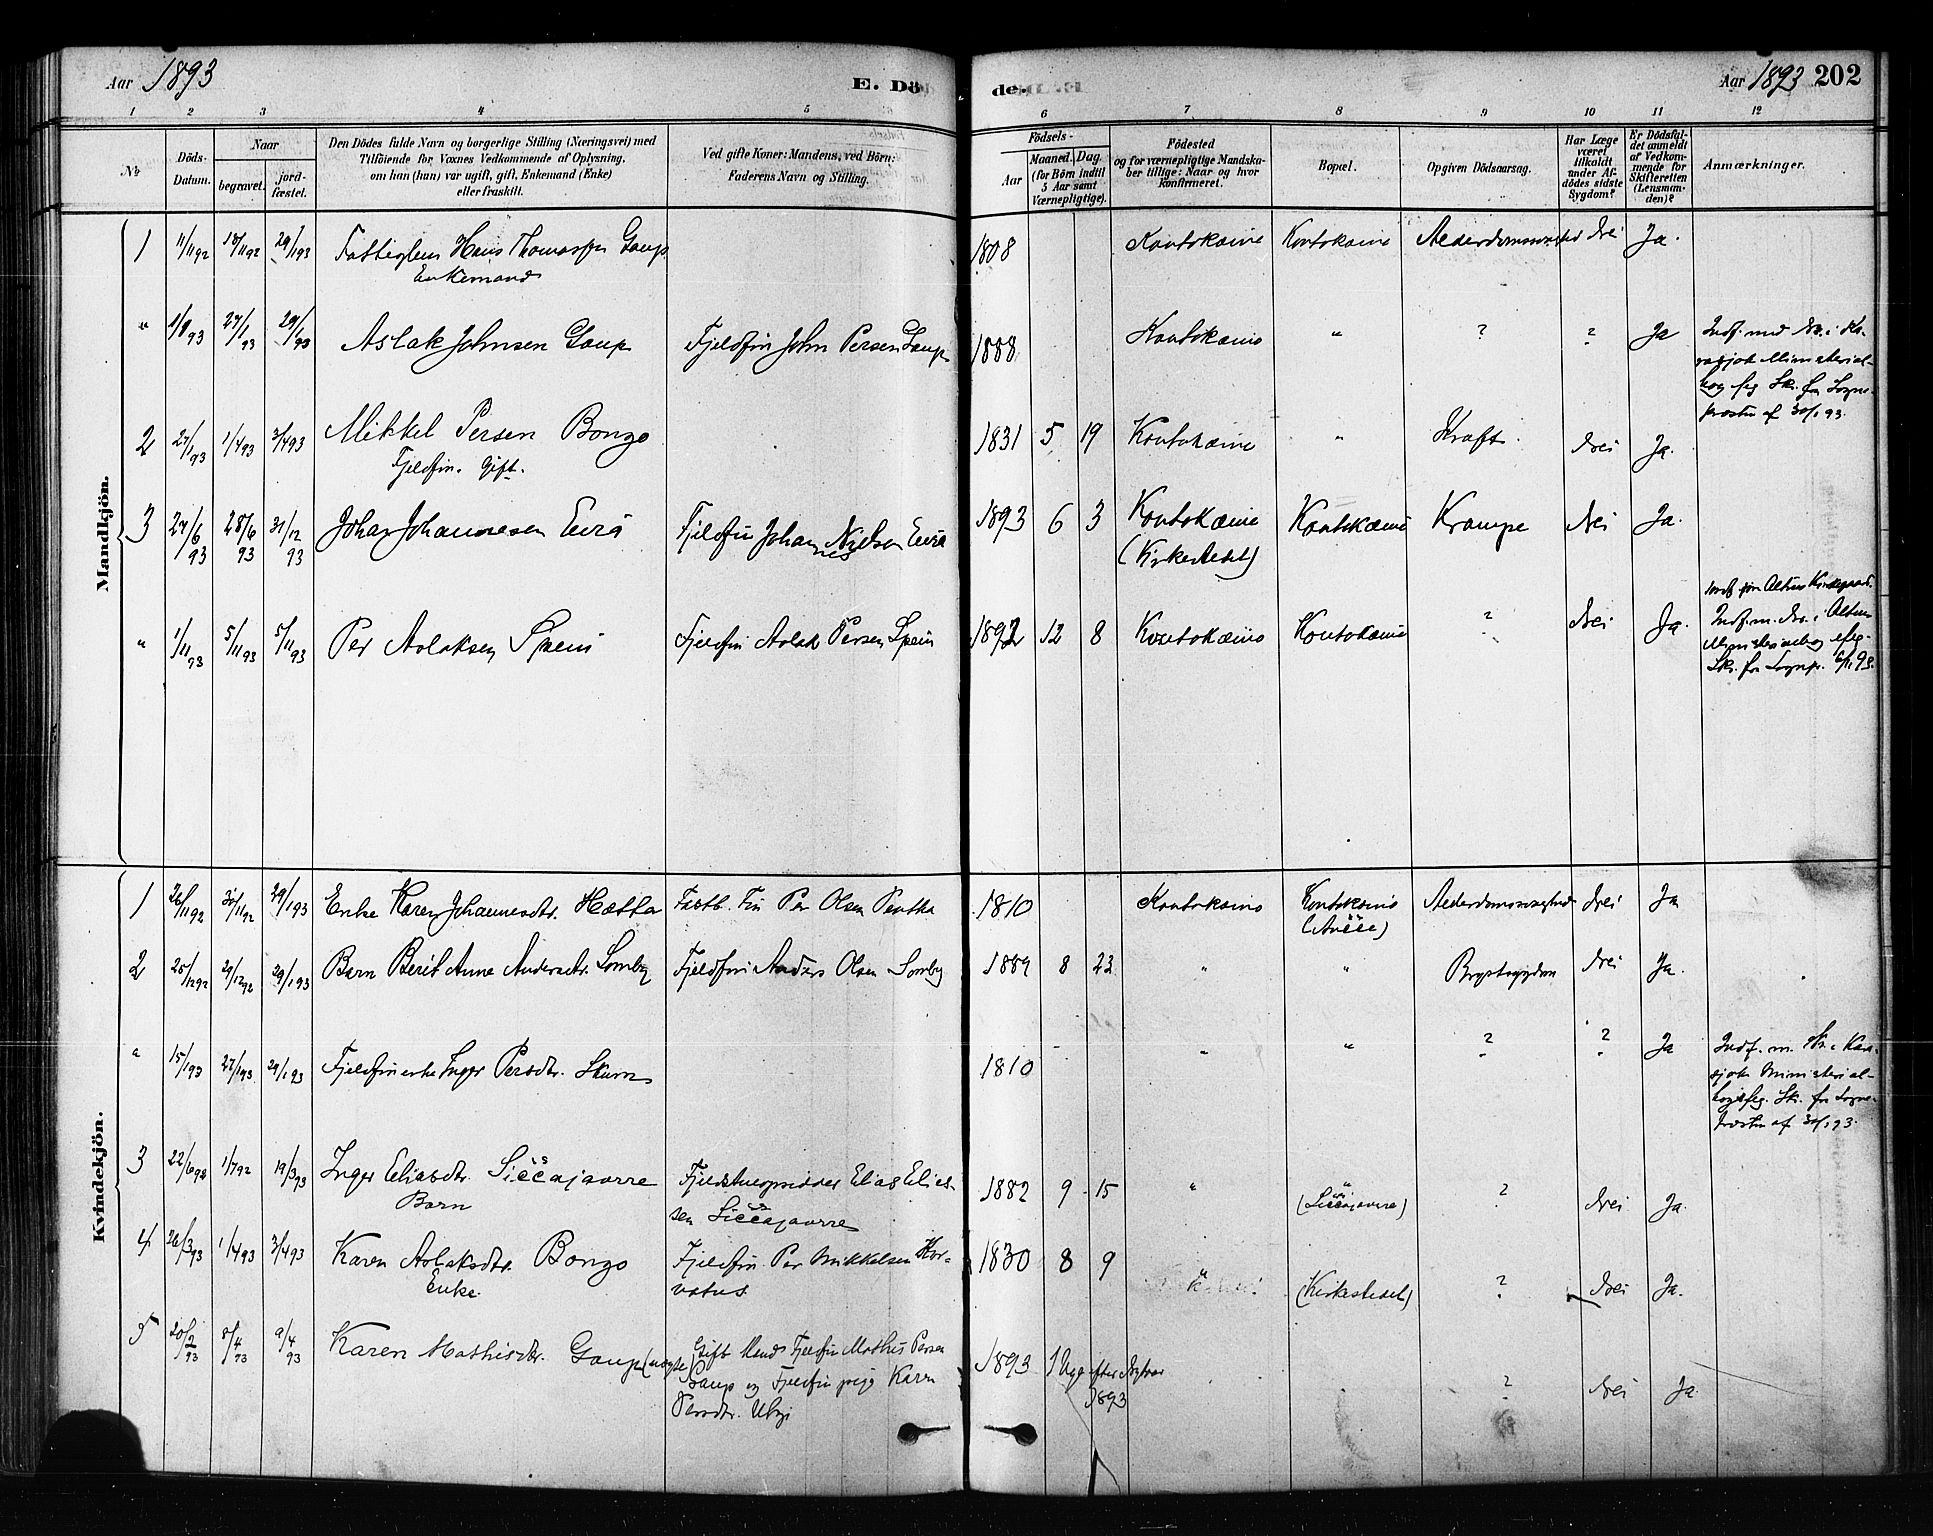 Aar 1893
E. Dö
de.
Aar 1893 202
1 2 3 4 5 6 7 8 9 10 11 12
No
Döds-
Datum.
Naar
begravet.
jord-
fæstet.
Den Dödes fulde Navn og borgerlige Stilling (Næringsvei) med
Tilföiende for Voxnes Vedkommende af Oplysning,
om han (hun) var ugift, gift, Enkemand (Enke)
eller fraskilt.
Ved gifte Koner: Mandens, ved Börn:
Faderens Navn og Stilling.
Födsels-
Aar
Maaned. Dag.
(for Börn indtil
5 Aar samt
Værnepligtige).
Födested
og for værnepligtige Mandska-
ber tillige: Naar og hvor
konfirmeret.
Bopæl.
Opgiven Dödsaarsag.
Har Læge
været
tilkaldt
under Af-
dödes sidste
Sygdom?
Er Dödsfal-
det anmeldt
af Vedkom-
mende for
Skifteretten
(Lensman-
den)?
Anmærkninger.
Mandkjön.
1 11/11 92 18/11 92 29/1 93 Fattiglem Hans Thomassen Gaup 1808 Koutokæino Koutokæino Alderdomssvaghed Nei Ja.
Enkemand
" 1/1 93 27/1 93 29/1 93 Aslak Johnsen Gaup Fjeldfin John Persen Gaup 1888 Koutokæino " ? ? Ja Indf. med No. i Ka-
rasjok Ministerial-
bog flg. Skr. fra Sogne-
presten af 30/1 93.
2 27/1 93 1/4 93 3/4 93 Mikkel Persen Bongo 1831 5 19 Koutokæino " Kræft. Nei Ja.
Fjeldfin. Gift.
3 27/6 93 28/6 93 31/12 93 Johan Johannesen Eira Fjeldfin Johannes Nielsen Eira 1893 6 3 Koutokæino Koutokæino Krampe Nei Ja.
(Kirkestedet)
" 1/11 93 5/11 93 5/11 93 Per Aslaksen Spein Fjeldfin Aslak Persen Spein 1892 12 8 Koutokæino Koutokæino ? Nei Ja.
Indf. m. No. i Alten
Ministerialbog
Skr. fra Sognepr. 6/11 93.
Kvindekjön.
1 26/11 92 30/11 92 29/1 93 Enke Karen Johannesdtr. Hætta Fastb. Fin Per Olsen Pentha 1810 Koutokæino Koutokæino Alderdomssvaghed Nei Ja
2 25/12 92 29/12 92 29/1 93 Barn Berit Anne Andersdtr. Somby Fjeldfin Anders Olsen Somby 1889 8 23 " " Brystsygdom Nei Ja.
" 15/1 93 27/1 93 29/1 93 Fjeldfinenke Inger Persdtr. Skum 1810 " " ? ? Ja Indf. m. No. i Kara-
sjok Ministerial-
bog flg. Skr. fra Sogne-
presten af 30/1 93.
3 22/6 92 1/7 92 19/3 93 Inger Eliasdtr. Siččajavrre Fjeldstueopsidder Elias Elias-
Barn
sen Siččajavrre 1882 9 15 " " (Siččajavrre) ? Nei Ja.
4 26/3 93 1/4 93 3/4 93 Karen Aslaksdtr. Bongo Fjeldfin Per Mikkelsen Hor-
Enke.
vatus 1830 8 9 " (Kirkestedet) ? Nei Ja.
5 20/2 93 8/4 93 9/4 93 Karen Mathisdtr. Gaup (uægte) Gift Mand Fjeldfin Mathis Persen
Gaup og Fjeldfin pige Karen
Persdtr. Utsi 1893 1 Uge efter Nytaar
1893 ? Nei Ja